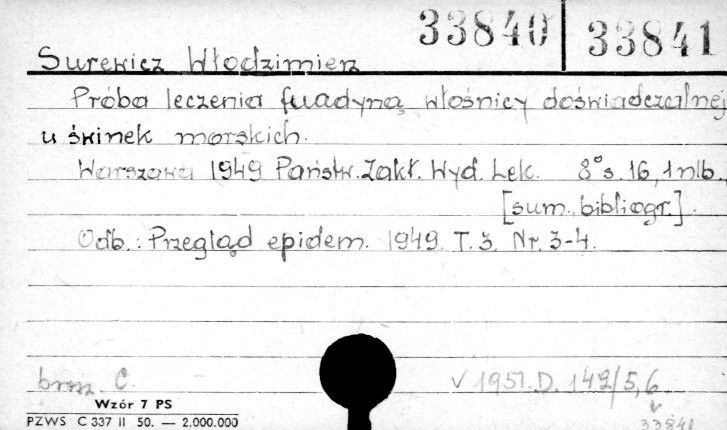 33840 33841
Surewicz Włodzimierz
Próba leczenia fuadyną włośnicy doświadczalnej
u świnek morskich.
Warszawa 1949 Państw. Zakł. Wyd. Lek. 8° s. 16, 1 nlb.
[sum., bibliogr.].
Odb.: Przegląd epidem. 1949. T. 3. Nr. 3-4.
brosz. C. √ 1951. D. 142/5,6
33841
Wzór 7 PS
PZWS C 337 II 50. — 2.000.000